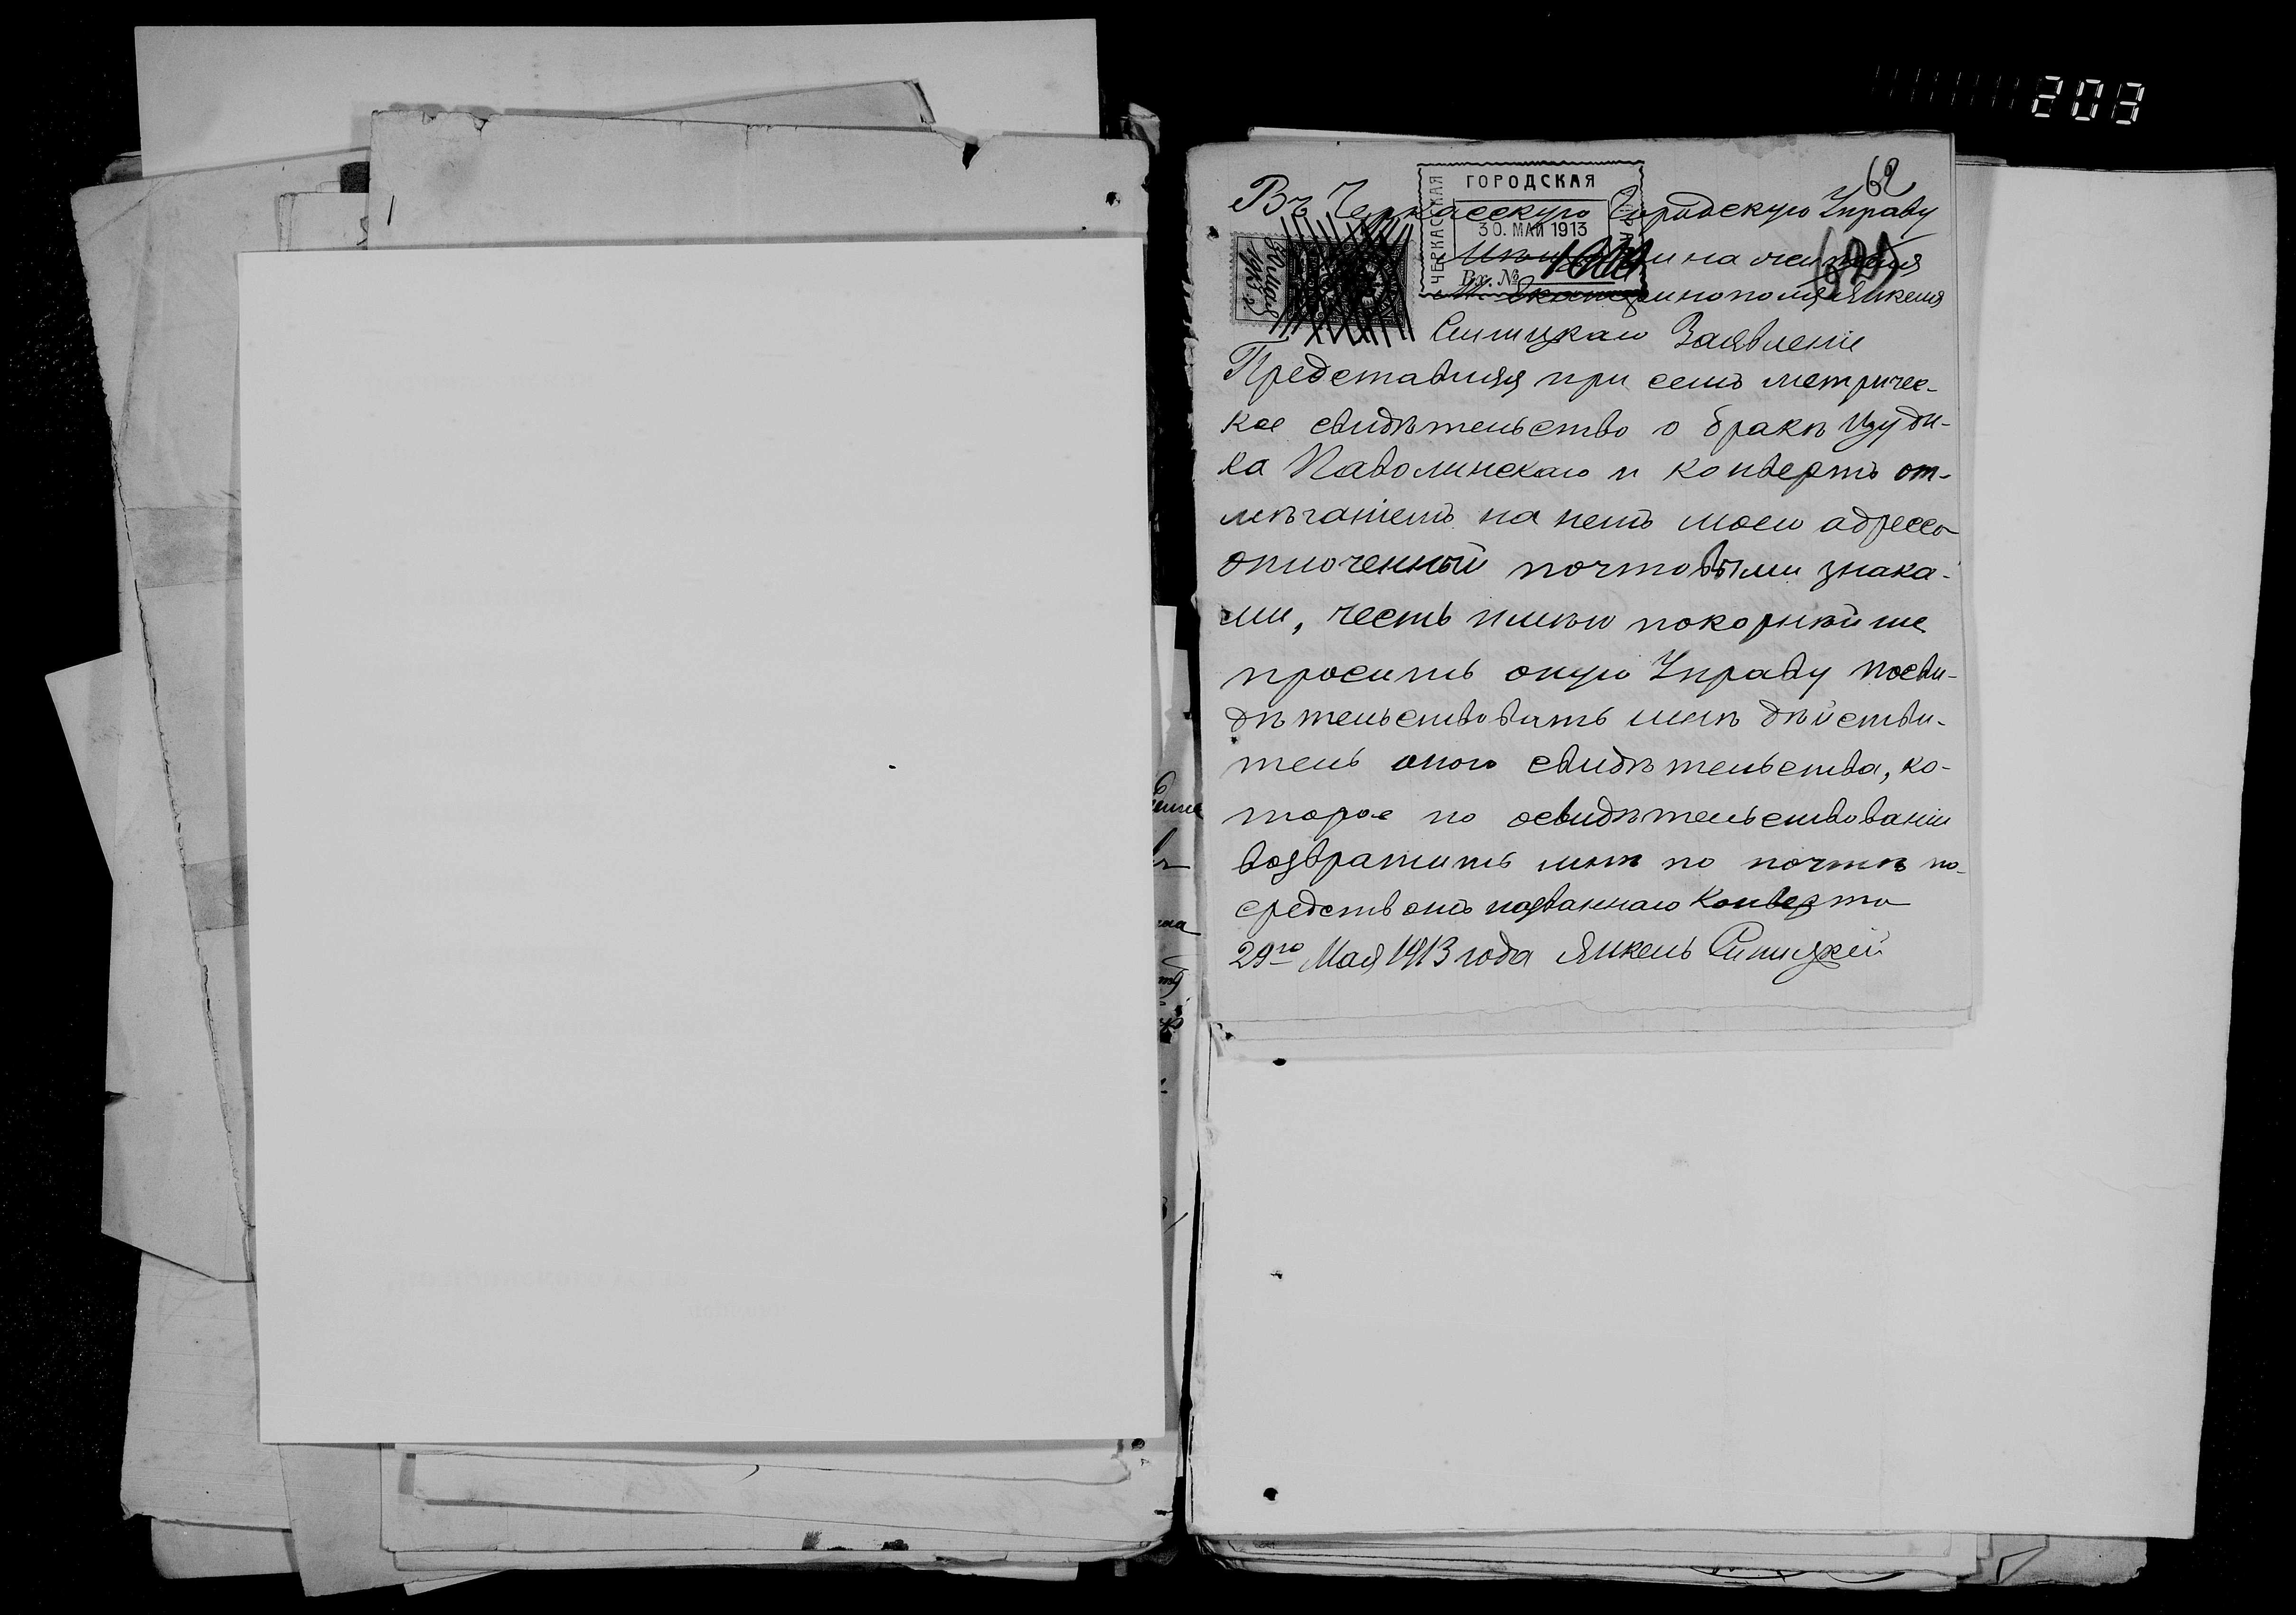 203
62
ЧЕРКАССКАЯ
ГОРОДСКАЯ
30. МАЙ 1913
Вх. №
30 Мая
1913 г.
Въ Черкасскую Городскую Управу
Мѣщанина мѣстечка
м. Екатеринополя Янкеля
Синицкаго Заявленіе
Представляя при семъ метричес-
кое свидѣтельство о бракѣ Изуди-
ка Паволинскаго и конвертъ от-
мѣчаніемъ на немъ моего адресса
оплоченный почтовыми знака-
ми, честь имѣю покорнѣйше
просить оную Управу посви-
дѣтельствовать мнѣ дѣйстви-
тель оного свидѣтельства, ко-
торое по освидѣтельствованіи
возвратить мнѣ по почтѣ по-
средствомъ названнаго Конверта
29го Мая 1913 года Янкель Синицкій